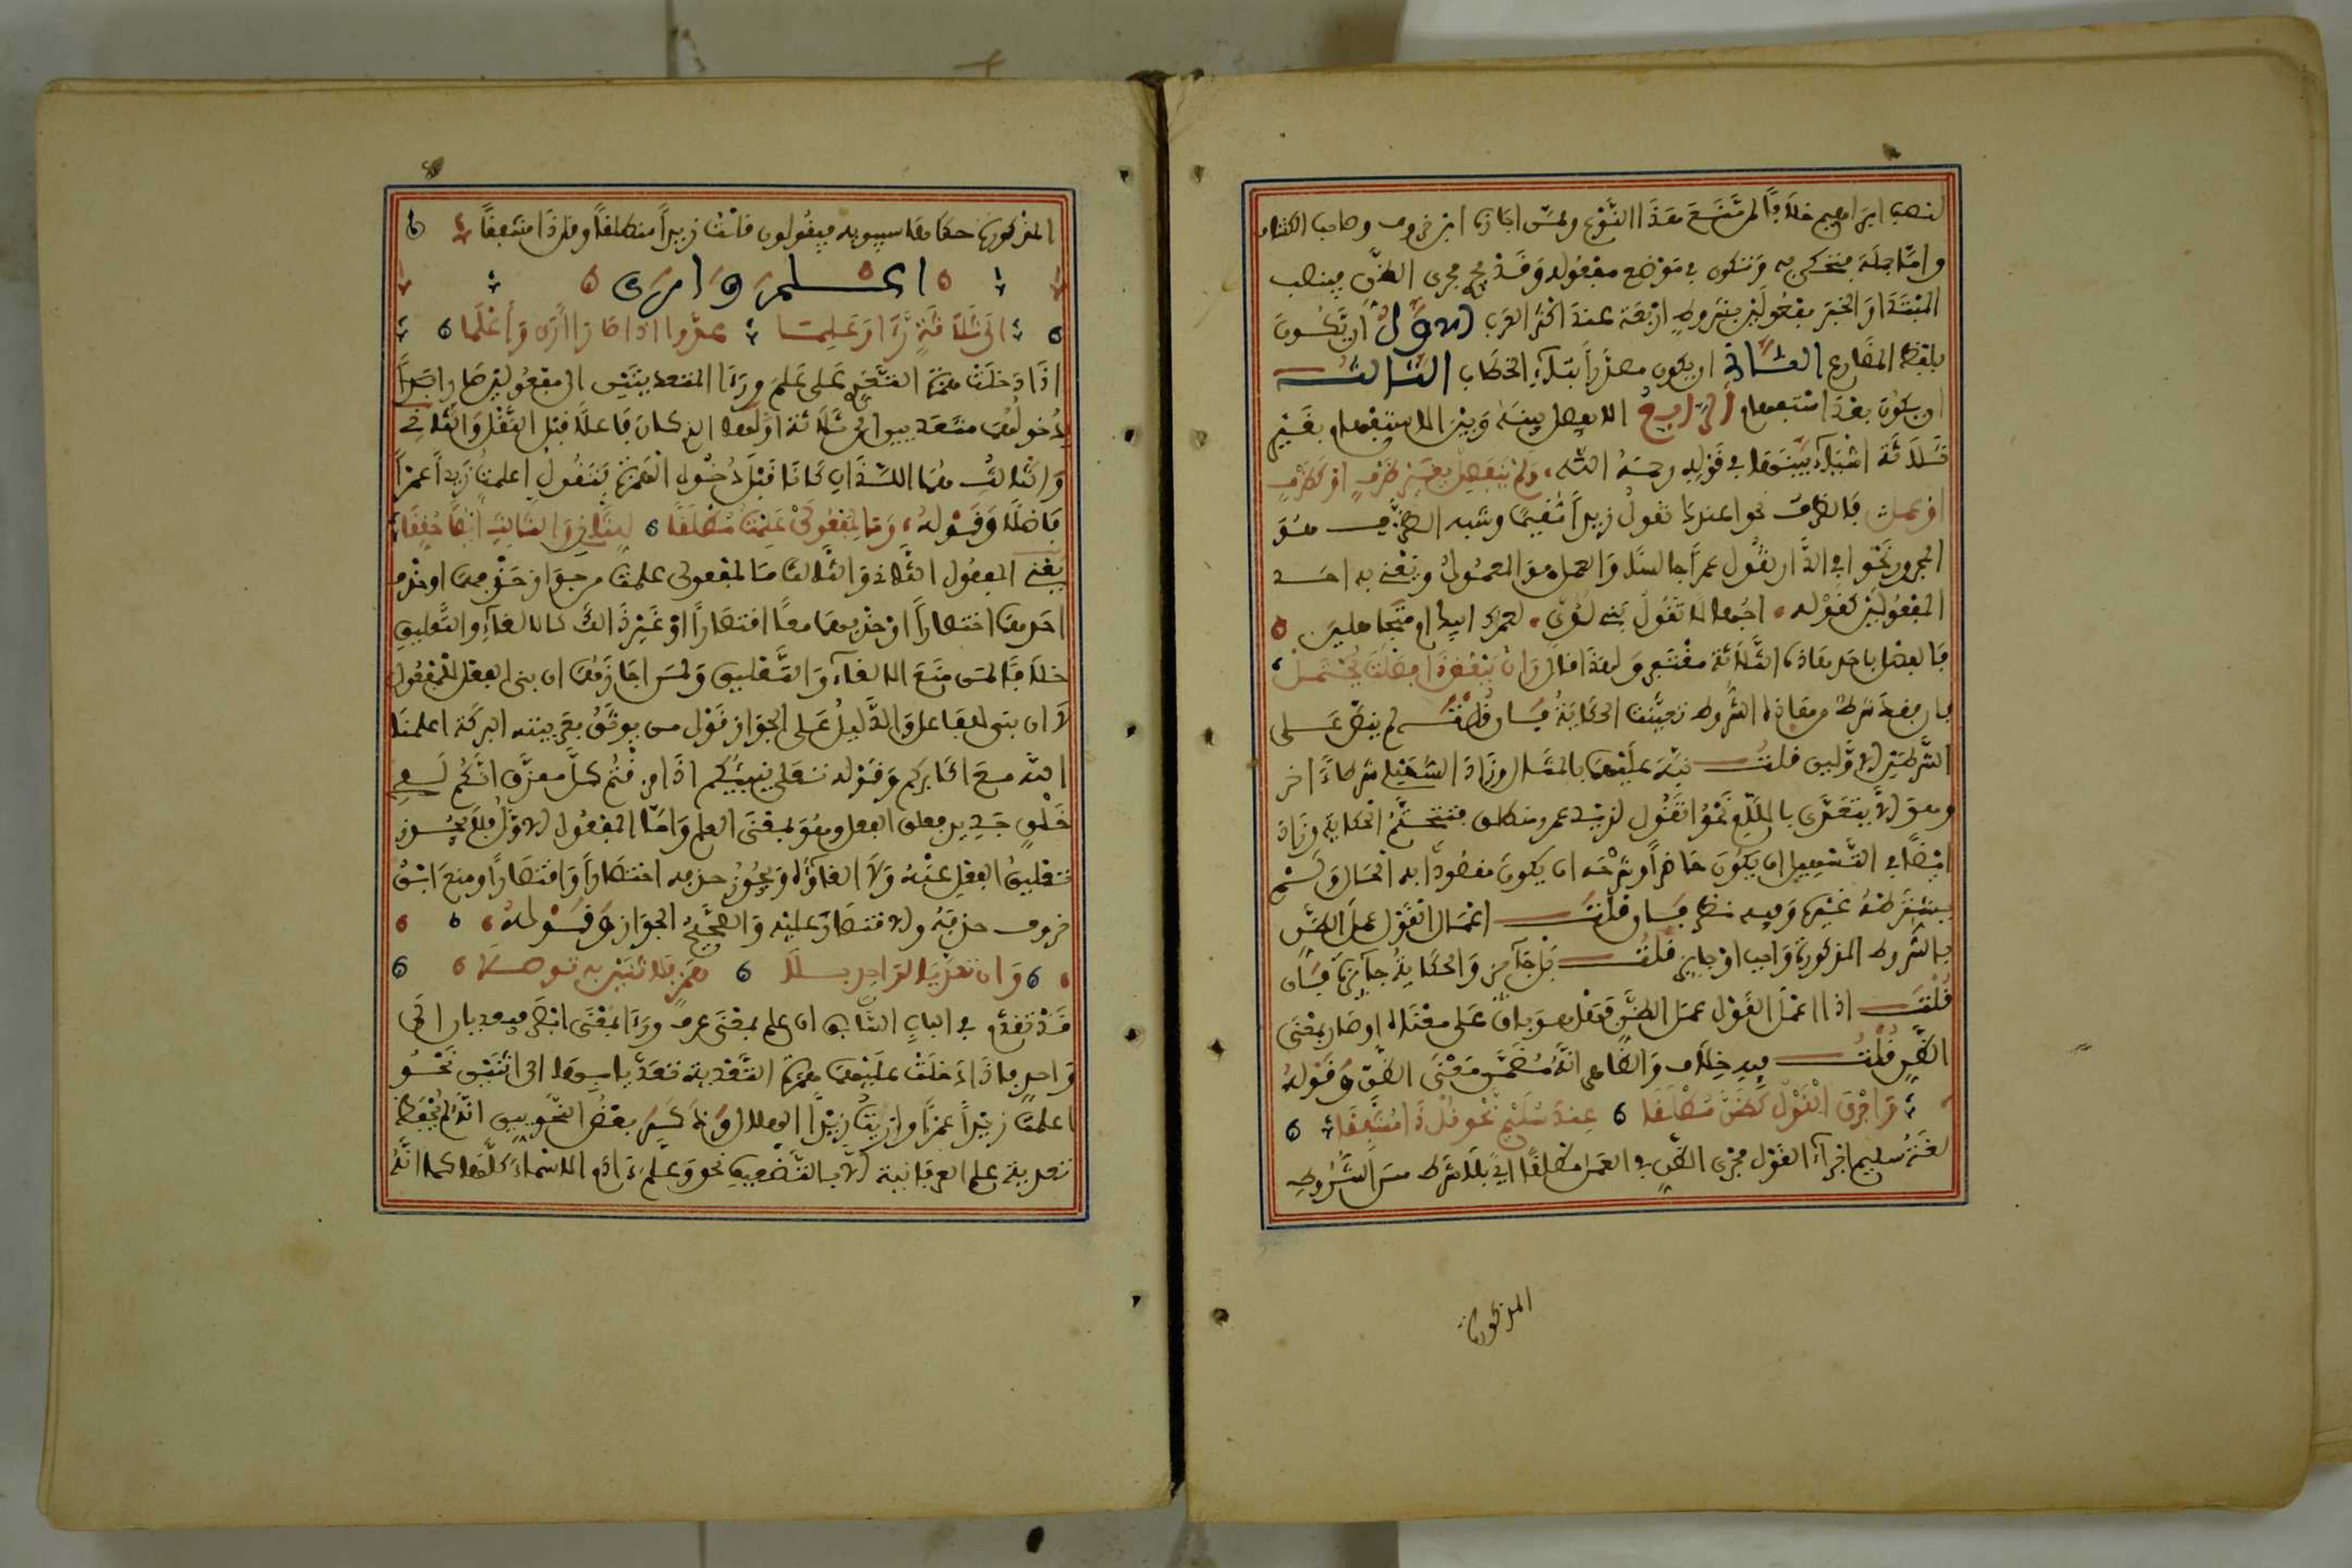 لنصب ابراهيم خلافا لمن منع هذا النوع وممن اجازه ابن خروف وصاحب الكشاف
واما جملة فتحكى به وتكون في موضع مفعوله وقد يجرى مجرى الظن فينصب
المبتدا والخبر مفعولين بشروط اربعة عند اكثر العرب الاول ان يكون
بلفظ المضارع الثاني ان يكون مصدرا بتاء الخطاب الثالث
ان يكون بعد استفهام الرابع الا يفصل بينه وبين الاستفهام بغير
ثلاثة اشياء بينها في قوله رحمه الله ولم ينفصل بغير ظرف او كظرف
او عمل فالظرف نحو اعندك تقول زيدا مقيما وشبه الظرف هو
المجرور نحو افي الدار تقول عمرا جالسا والعمل هو المعمول ويعني به احد
المفعولين كقوله اجهالا تقول بني لؤي لعمر ابيك ام متجاهلين
فالفصل باحد هاذه الثلاثة مغتفر ولهذا قال وان ببعض ذي فصلت يحتمل
فان فقد شرط من هاذه الشروط تعينت الحكاية فان قلت لم ينص على
الشرطين الاولين قلت نبه عليهما بالمثال وزاد السهيلي شرطا اخر
وهو الا يتعدى باللام نحو اتقول لزيد عمرو منطلق فتتحتم الحكاية وزاد
ايضا في التسهيل ان يكون حاضرا وفي شرحه ان يكون مقصودا به الحال ولم
يشترطه غيره وفيه نظر فان قلت اعمال القول عمل الظن
بالشروط المذكورة واجب او جايز قلت بل جايز والحكاية جايزة فان
قلت اذا اعمل القول عمل الظن فهل هو باق على معناه او صار بمعنى
الظن قلت فيه خلاف والظاهر انه مضمن معنى الظن وقوله
واجري القول كظن مطلقا عند سليم نحو قل ذا مشفقا
لغة سليم اجراء القول مجرى الظن في العمل مطلقا اي بلا شرط من الشروط
المذكورة
المذكورة حكاها سيبويه فيقولون قلت زيدا منطلقا وقل ذا مشفقا
اعلم وارى
الى ثلاثة راى وعلما عدوا اذا صارا ارى واعلما
اذا دخلت همزة النقل على علم وراى المتعديتين الى مفعولين صارا
بدخولها متعديين الى ثلاثة اولها الذي كان فاعلا قبل النقل والثاني
والثالث هما اللذان كانا قبل دخول الهمزة فتقول اعلمت زيدا عمرا
فاضلا وقوله وما لمفعولي علمت مطلقا للثان والثالث ايضا حققا
يعني المفعول الثاني والثالث ما لمفعولي علمت من جواز حذفهما او حذف
احدهما اختصارا او حذفهما معا اقتصارا او غير ذالك كالالغاء والتعليق
خلافا لمن منع الالغاء والتعليق ولمن اجازهما ان بنى الفعل للمفعول
لا ان بني للفاعل والدليل على الجواز قول من يوثق بعربيته البركة اعلمنا
الله مع اكابركم وقوله تعلى ينبئكم اذا مزقتم كل ممزق انكم لفي
خلق جديد فعلق الفعل وهو بمعنى العلم واما المفعول الاول فلا يجوز
تعليق الفعل عنه ولا الغاؤه ويجوز حذفه اختصارا واقتصارا ومنع ابن
خروف حذفه والاقتصار عليه والصحيح الجواز وقوله
وان تعديا لواحد بلا همز فلاثنين به توصلا
قد تقدم في الباب السابق ان علم بمعنى عرف وراى بمعنى ابصر يتعديان الى
واحد فاذا دخلت عليهما همزة التعدية تعديا بسببها الى اثنين نحو
اعلمت زيدا عمرا واريت زيدا الهلال وذكر بعض النحويين انه لم يحفظ
تعدية علم العرفانية الا بالتضعيف نحو وعلم ءادم الاسماء كلها كما انه